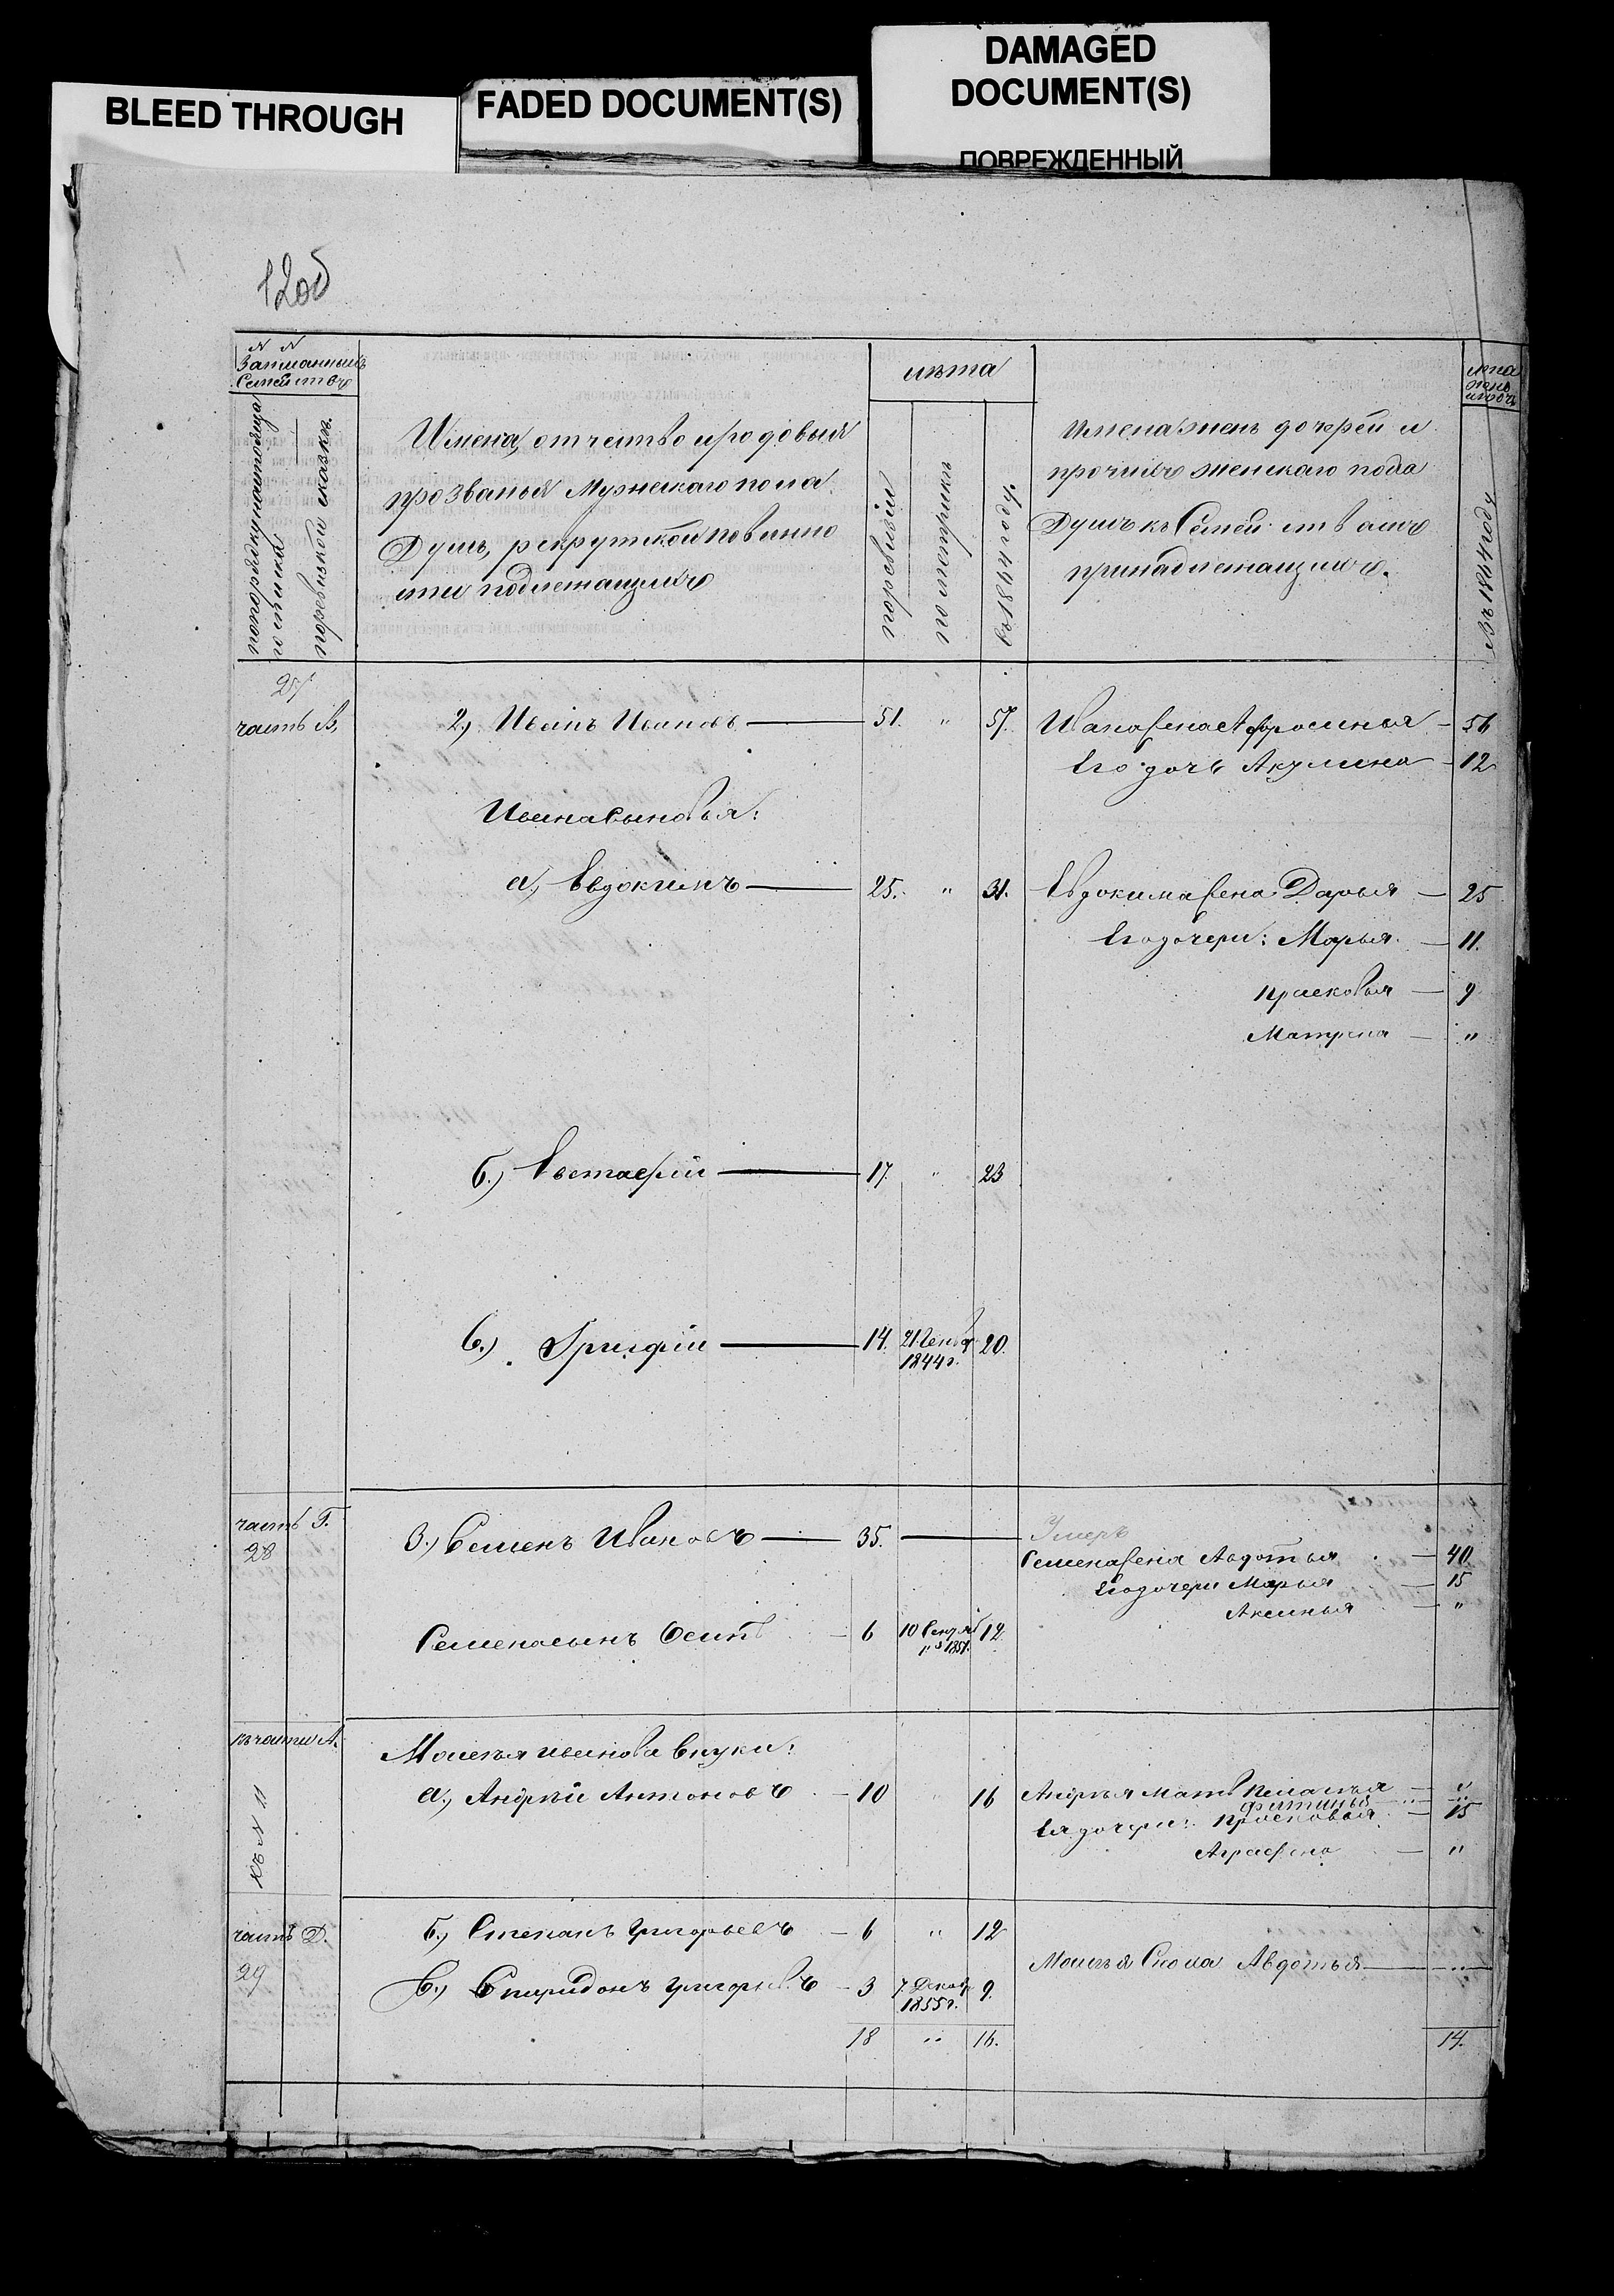 BLEED THROUGH
FADED DOCUMENT(S)
DAMAGED
DOCUMENT(S)
ПОВРЕЖДЕННЫЙ
120б
N N
Семействъ
по порядку настоящаго списка
по ревизской сказкѣ.
Имена, отчество и родовыя
прозванья Мужескаго пола
Душъ, рекрутской повинно
сти подлежащихъ
лѣта
по ревизіи
по метрикѣ
въ 1864 году.
Имена женъ дочерей и
прочихъ женскаго пола
Душъ къ Семействамъ
принадлежащихъ.
лѣта
женъ
Въ 1864 году
27
часть В,
2, Иванъ Ивановъ — 51. " 57. Ивана жена Афросинья — 56
Его дочь Акулина — 12
Ивана сыновья:
а, Евдокимъ — 25. " 31. Евдокима жена Дарья — 25
Его дочери: Марья — 11.
Прасковья — 9
Матрена — "
б.) Евстафій — 17. " 23
в.) Трифій — 14. 21 Генвя 20.
1844 г.
часть Г.
28
3.) Семенъ Ивановъ — 35. — Умеръ
Семена жена Авдотья — 40.
Его дочери Марья — 15
Аксинья — "
Семена сынъ Осипъ — 6 10 Сентяб 12
1851.
къ части А.
къ N 11
Моисея Иванова внуки:
а.) Андрей Антоновъ — 10 " 16 Андрея мать Пелагья — "
Фитинья — "
Ея дочери: Прасковья — 15
Аграфена — "
часть Д.
29
б.) Степанъ Григорьевъ — 6 " 12
Моисея Сноха Авдотья —
в.) Спиридонъ Григорьевъ — 3 7 Декаб 9.
1855 г.
18 " 16. 14.